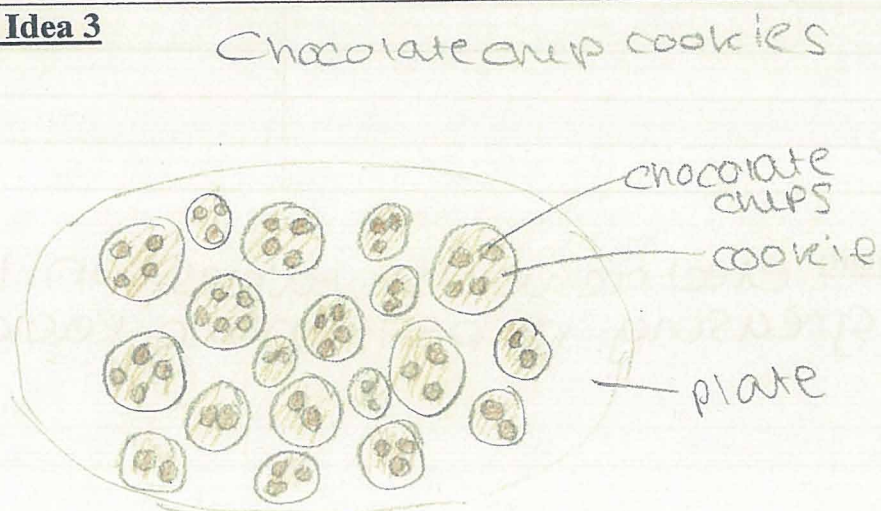 Idea 3
Chocolate chip cookies
chocolate
chips
cookie
plate